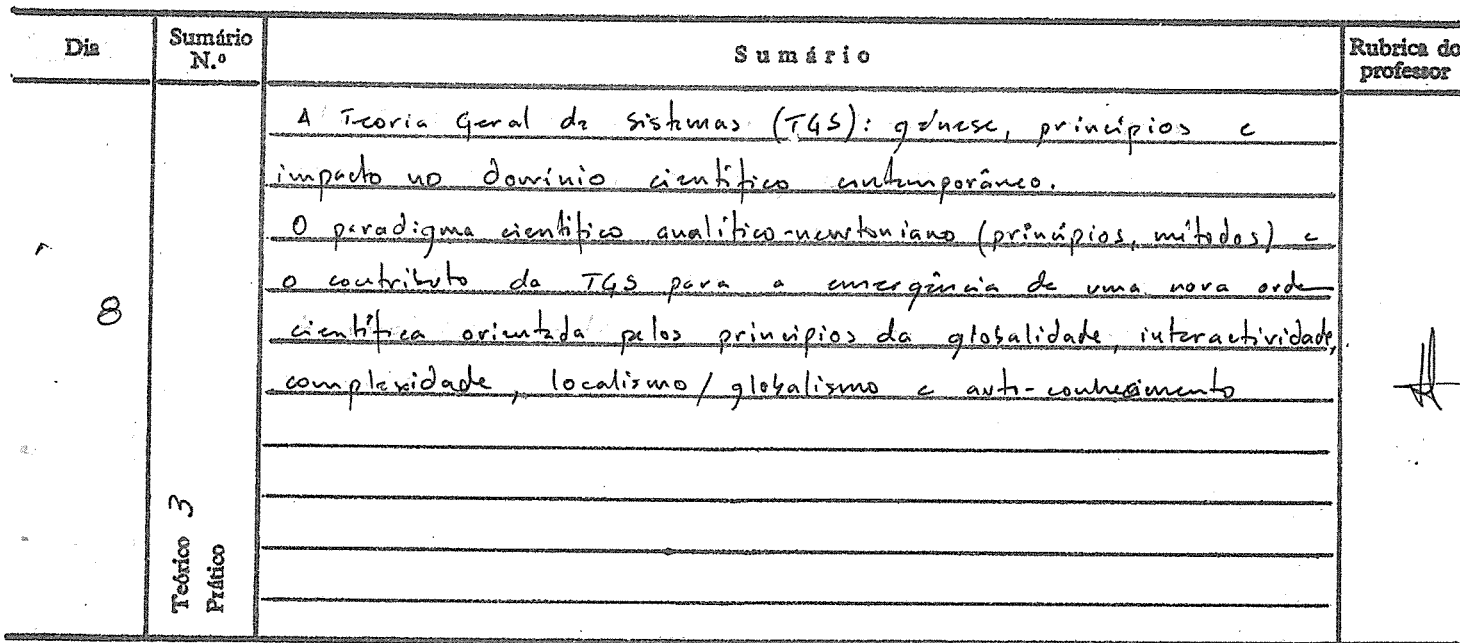 Dia
Sumário N.º
Sumário
Rubrica do professor
8
Teórico 3
Prático
A Teoria Geral de Sistemas (TGS): génese, princípios e
impacto no domínio científico contemporâneo.
O paradigma científico analítico-newtoniano (princípios, métodos) e
o contributo da TGS para a emergência de uma nova orde
científica orientada pelos princípios da globalidade, interactividade,
complexidade, localismo/globalismo e auto-conhecimento